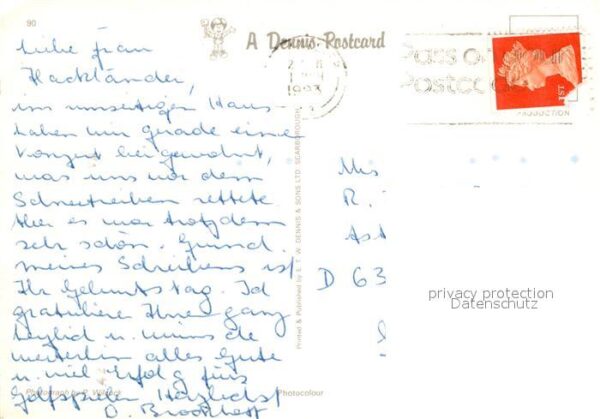 90
A Dennis Postcard
Liebe Frau
Hackländer,
im umseitigen Haus
haben wir gerade einem
Konzert beigewohnt,
was uns vor dem
Schneetreiben rettete
Aber es war trotzdem
sehr schön. Grund
meines Schreibens ist
Ihr Geburtstag. Ich
gratuliere Ihnen ganz
herzlich u. wünsche
weiterhin alles Gute
u. viel Erfolg fürs
Golfspielen Herzlichst
Photograph by
Photocolour
Printed & Published by E. T. W. DENNIS & SONS LTD. SCARBOROUGH
1ST
PRODUCTION
Mis
R.
Ast
D 63
privacy protection
Datenschutz